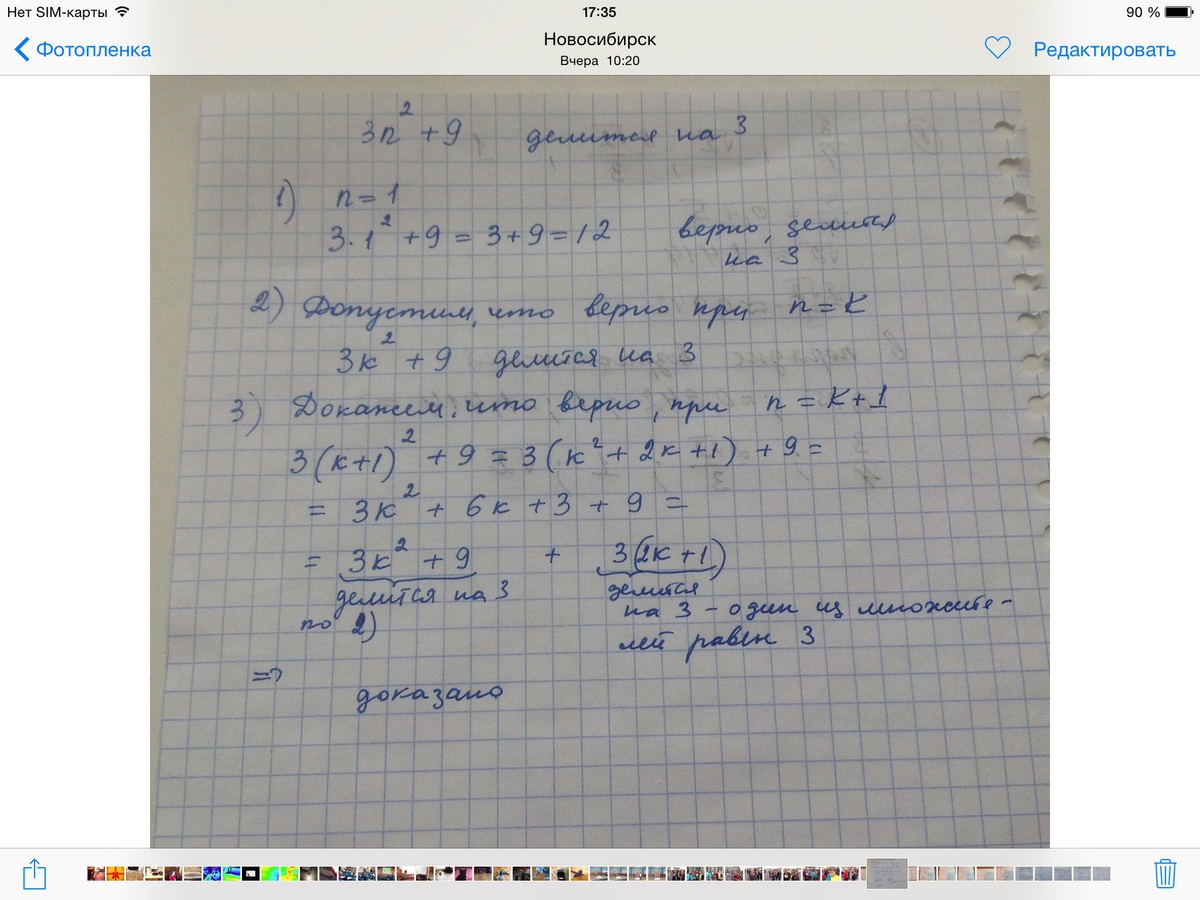 Нет SIM-карты
17:35
90 %
Фотопленка
Новосибирск
Вчера 10:20
Редактировать
3n² + 9 делится на 3
1) n = 1
3·1² + 9 = 3 + 9 = 12 верно, делится
на 3
2) Допустим, что верно при n = K
3к² + 9 делится на 3
3) Докажем, что верно, при n = K + 1
3(к+1)² + 9 = 3(к² + 2к + 1) + 9 =
= 3к² + 6к + 3 + 9 =
= 3к² + 9 + 3(2к + 1)
делится на 3 делится
по 2) на 3 - один из множите-
лей равен 3
=>
доказано